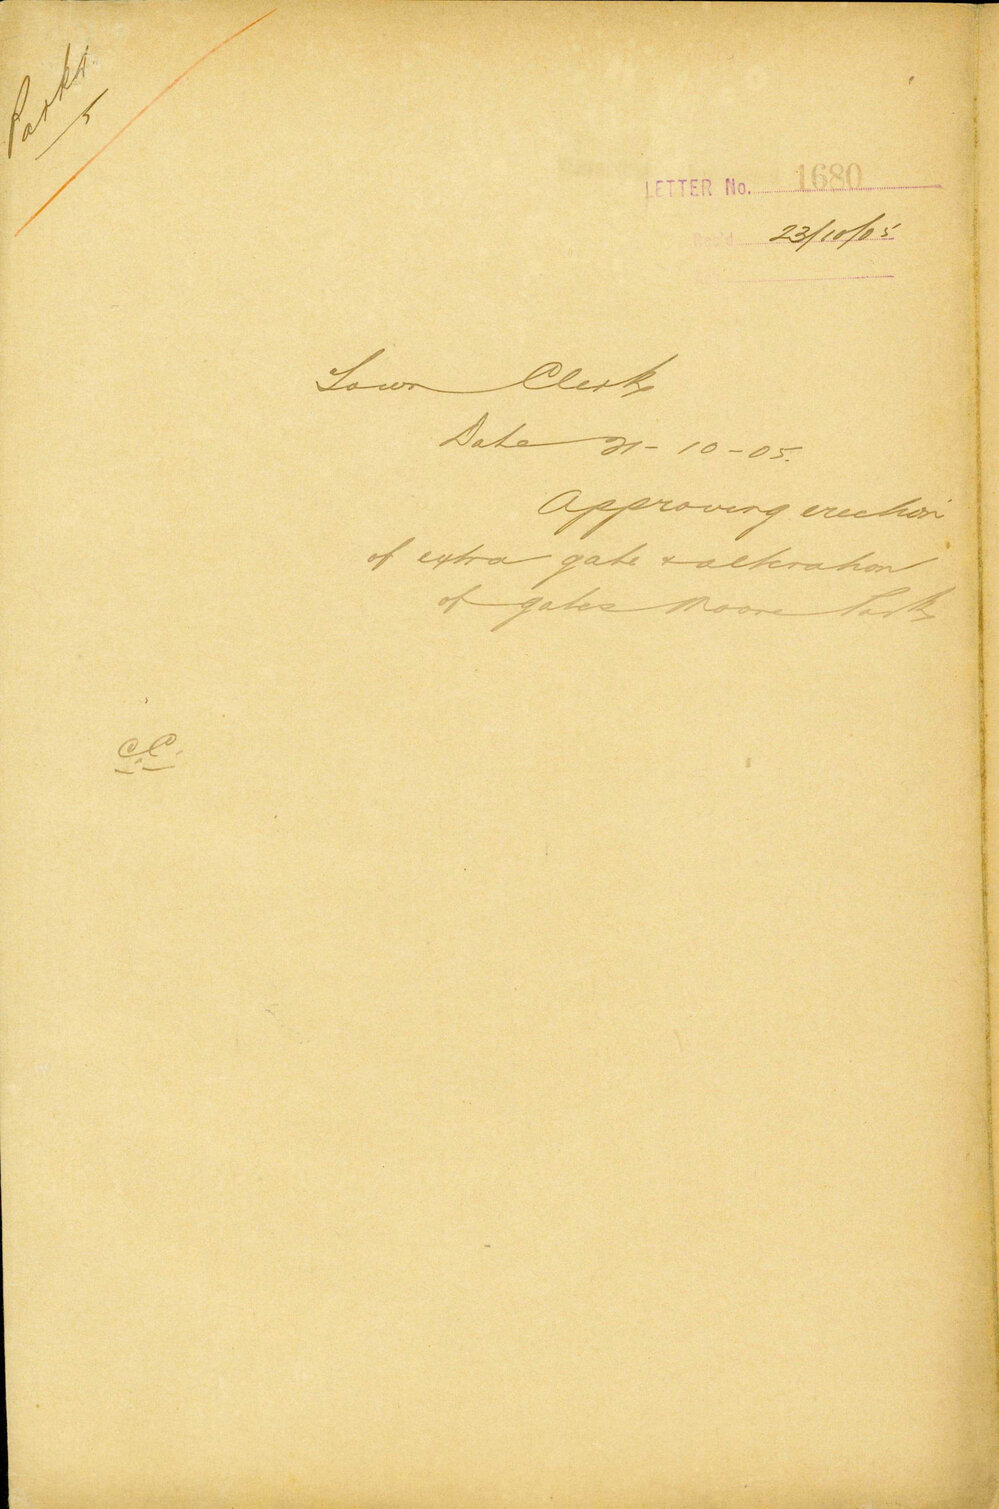 Parks
5
LETTER No. 1680
Rec'd 23/10/05
Town Clerk
Date 21-10-05.
Approving erection
of extra gate & alteration
of gates Moore Park
C.C.